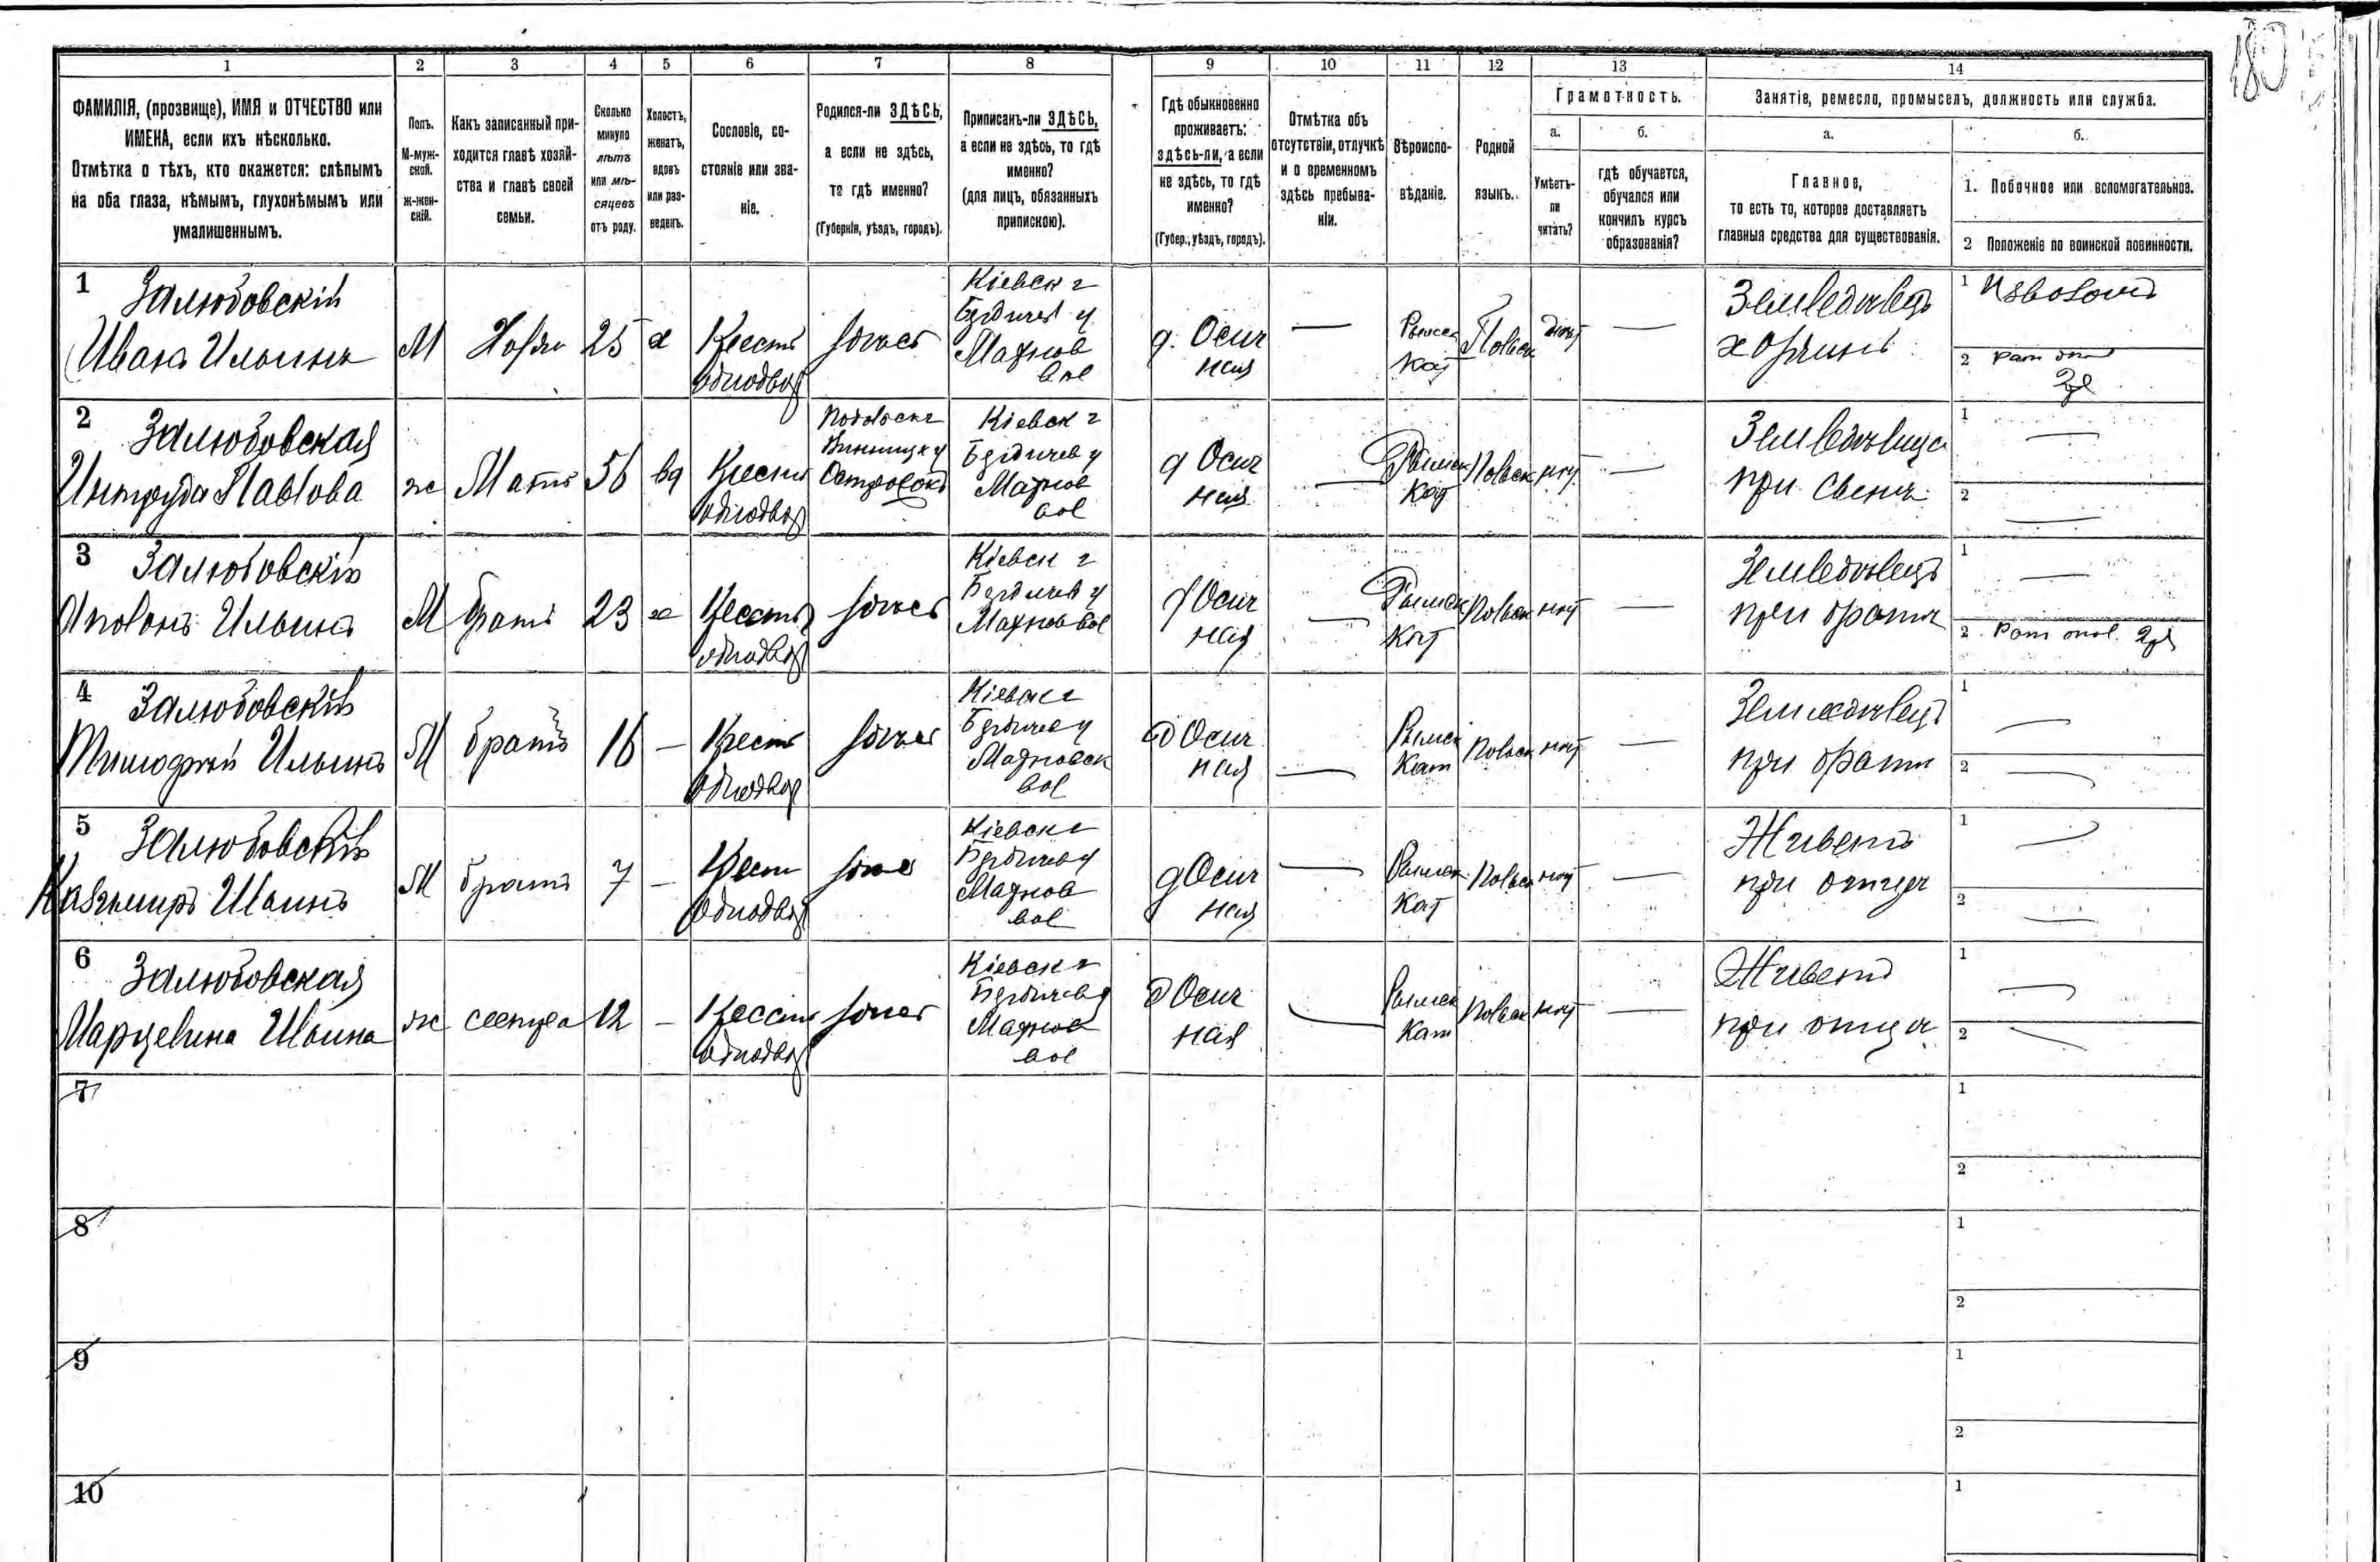 180
1 2 3 4 5 6 7 8 9 10 11 12 13 14
ФАМИЛІЯ, (прозвище), ИМЯ и ОТЧЕСТВО или
ИМЕНА, если ихъ нѣсколько.
Отмѣтка о тѣхъ, кто окажется: слѣпымъ
на оба глаза, нѣмымъ, глухонѣмымъ или
умалишеннымъ.
Полъ.
М-муж-
ской.
ж-жен-
скій.
Какъ записанный при-
ходится главѣ хозяй-
ства и главѣ своей
семьи.
Сколько
минуло
лѣтъ
или мѣ-
сяцевъ
отъ роду.
Холостъ,
женатъ,
вдовъ
или раз-
веденъ.
Сословіе, со-
стояніе или зва-
ніе.
Родился-ли ЗДѢСЬ,
а если не здѣсь,
то гдѣ именно?
(Губернія, уѣздъ, городъ).
Приписанъ-ли ЗДѢСЬ,
а если не здѣсь, то гдѣ
именно?
(для лицъ, обязанныхъ
припискою).
Гдѣ обыкновенно
проживаетъ:
здѣсь-ли, а если
не здѣсь, то гдѣ
именно?
(Губер., уѣздъ, городъ).
Отмѣтка объ
отсутствіи, отлучкѣ
и о временномъ
здѣсь пребыва-
ніи.
Вѣроиспо-
вѣданіе.
Родной
языкъ.
Грамотность.
а.
Умѣетъ-
ли
читать?
б.
гдѣ обучается,
обучался или
кончилъ курсъ
образованія?
Занятіе, ремесло, промыселъ, должность или служба.
а.
Главное,
то есть то, которое доставляетъ
главныя средства для существованія.
б.
1. Побочное или вспомогательное.
2 Положеніе по воинской повинности.
1
Залюбовскій
Иванъ Ильинъ
М
25
х
Крестъ
однодвор
Кіевск г
Бердичев у
Махнов
вол
д. Осич
ная
—
Римск
Кат
Польск
—
1
2
2
Залюбовская
Павлова
ж
Мать
56
вд
Крестъ
однодвор
Подольск г
Винницк у
Кіевск г
Бердичев у
Махнов
вол
д Осич
ная
—
Римск
Кат
Польск
нѣт
—
при сынѣ
1 —
2 —
3
Залюбовскій
Ильинъ
М
братъ
23
х
Крестъ
однодвор
Кіевск г
Бердичев у
Махнов вол
д Осич
ная
—
Римск
Кат
Польск
нѣт
—
при братѣ
1 —
2
4
Залюбовскій
Ильинъ
М
братъ
16
—
Крест
однодвор
Кіевск г
Бердичев у
Махновск
вол
д Осич
ная
—
Римск
Кат
Польск
нѣт
—
при братѣ
1 —
2 —
5
Залюбовскій
Казимиръ Ильинъ
М
братъ
7
—
Крест
однодвор
Кіевск г
Бердичев у
Махнов
вол
д Осич
ная
—
Римск
Кат
Польск
нѣт
—
Живетъ
при отцѣ
1 —
2 —
6
Залюбовская
Марцелина Ильина
ж
сестра
12
—
Крест
однодвор
Кіевск г
Бердичев у
Махнов
вол
д Осич
ная
—
Римск
Кат
Польск
нѣт
—
Живетъ
при отцѣ
1 —
2 —
7
1
2
8
1
2
9
1
2
10
1